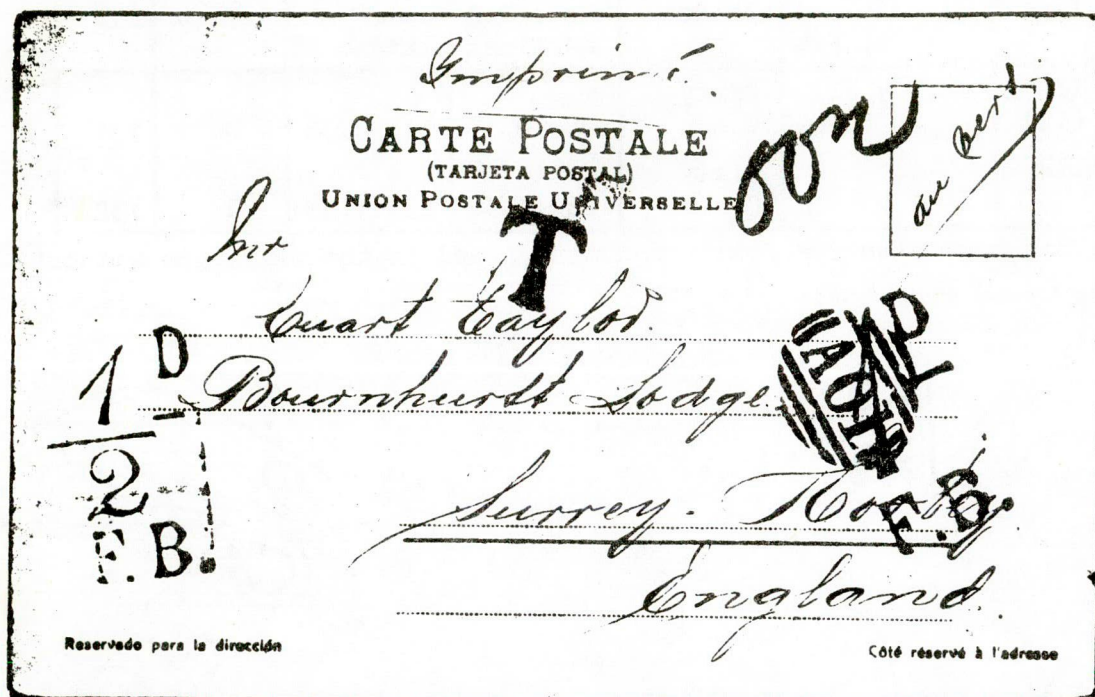 Imprimé
CARTE POSTALE
(TARJETA POSTAL)
UNION POSTALE UNIVERSELLE
au vers
T
Mr
Taylor
Bournhurst Lodge
Surrey.
England.
1 D
2
F.B.
D
F.B.
Reservado para la dirección
Côté réservé à l'adresse